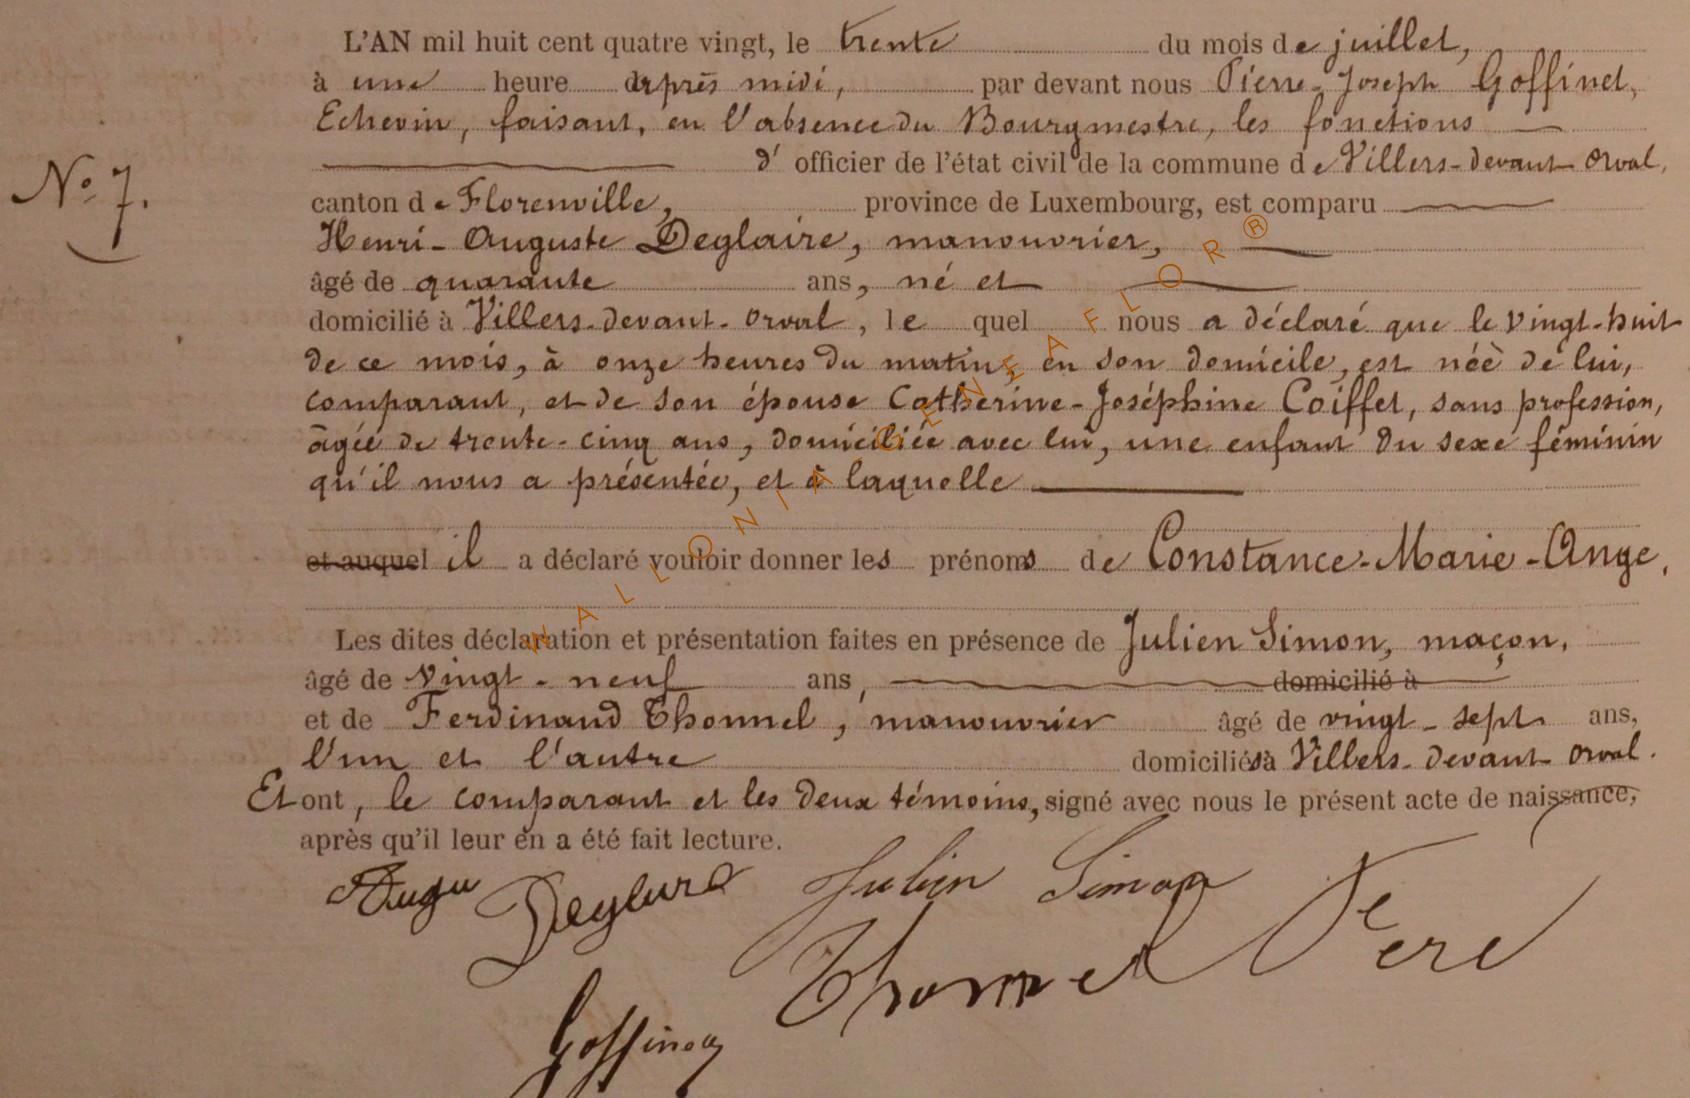 L'AN mil huit cent quatre vingt, le trente du mois de juillet,
à une heure après midi, par devant nous Pierre-Joseph Goffinet,
Echevin, faisant, en l'absence du Bourgmestre, les fonctions
d' officier de l'état civil de la commune de Villers-devant-Orval,
N° 7.
canton de Florenville, province de Luxembourg, est comparu
Henri-Auguste Deglaire, manouvrier,
âgé de quarante ans, né et
domicilié à Villers-devant-Orval, le quel nous a déclaré que le vingt-huit
de ce mois, à onze heures du matin, en son domicile, est néè de lui,
comparant, et de son épouse Catherine-Joséphine Coiffet, sans profession,
âgée de trente-cinq ans, domiciliée avec lui, une enfant du sexe féminin
qu'il nous a présentée, et à laquelle
et auquel il a déclaré vouloir donner les prénoms de Constance-Marie-Ange,
Les dites déclaration et présentation faites en présence de Julien Simon, maçon,
âgé de vingt-neuf ans, domicilié à
et de Ferdinand Thonnel, manouvrier âgé de vingt-sept ans,
l'un et l'autre domiciliés à Villers-devant-Orval.
Et ont, le comparant et les deux témoins, signé avec nous le présent acte de naissance,
après qu'il leur en a été fait lecture.
Julien Simon
Thonnel
Goffinet
WALLONIA GENEAFLOR®